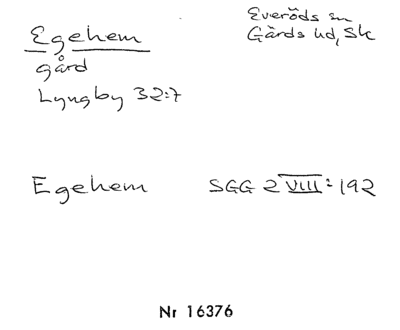 Egehem
Everöds sn
Gärds hd, Sk
gård
Lyngby 32:7
Egehem SGG 2 VIII: 192
Nr 16376